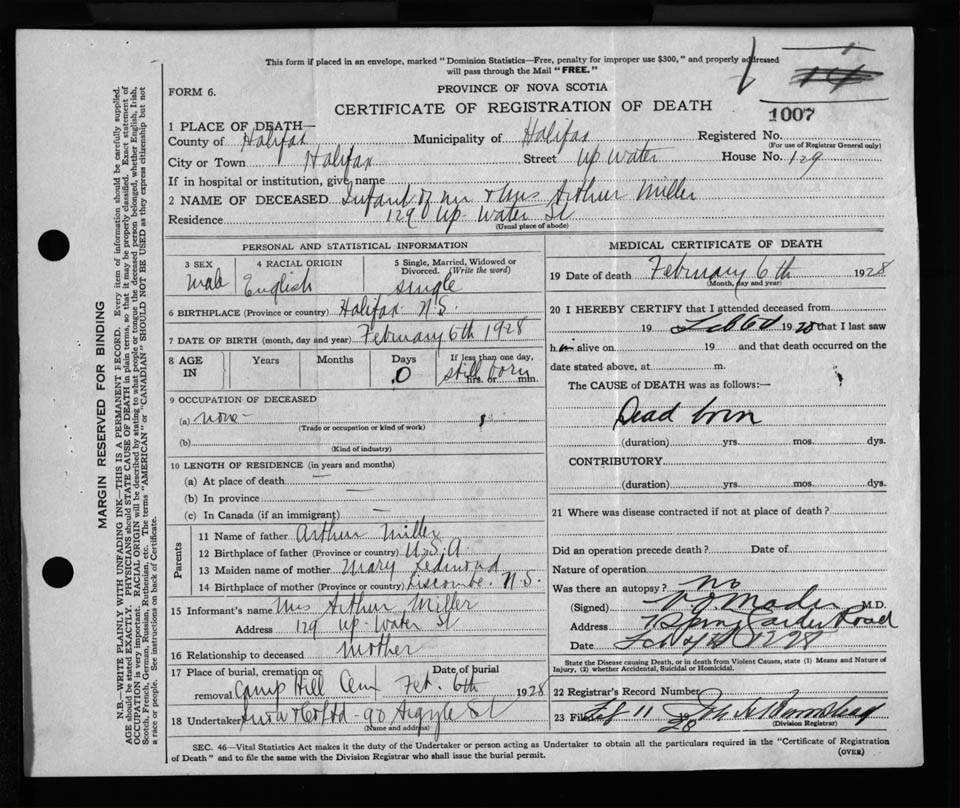 This form if placed in an envelope, marked "Dominion Statistics—Free, penalty for improper use $300," and properly addressed
will pass through the Mail "FREE."
FORM 6.
PROVINCE OF NOVA SCOTIA
CERTIFICATE OF REGISTRATION OF DEATH
1007
1 PLACE OF DEATH—
County of Halifax Municipality of Halifax Registered No.
(For use of Registrar General only)
City or Town Halifax Street Up Water House No. 129
If in hospital or institution, give name
2 NAME OF DECEASED Infant of Mr & Mrs Arthur Miller
Residence 129 Up-Water St
(Usual place of abode)
PERSONAL AND STATISTICAL INFORMATION
3 SEX Male
4 RACIAL ORIGIN English
5 Single, Married, Widowed or Divorced. (Write the word) single
6 BIRTHPLACE (Province or country) Halifax N.S.
7 DATE OF BIRTH (month, day and year) February 6th 1928
8 AGE IN Years Months Days 0 If less than one day, hrs. or min. still born
9 OCCUPATION OF DECEASED
(a) none
(Trade or occupation or kind of work)
(b)
(Kind of industry)
10 LENGTH OF RESIDENCE (in years and months)
(a) At place of death —
(b) In province —
(c) In Canada (if an immigrant) —
Parents
11 Name of father Arthur Miller
12 Birthplace of father (Province or country) U.S.A.
13 Maiden name of mother Mary Redmond
14 Birthplace of mother (Province or country) Liscombe. N.S.
15 Informant's name Mrs Arthur Miller
Address 129 Up-Water St
16 Relationship to deceased Mother
17 Place of burial, cremation or removal Camp Hill Cem Date of burial Feb. 6th 1928
18 Undertaker Ltd - 90 Argyle St
(Name and address)
MEDICAL CERTIFICATE OF DEATH
19 Date of death February 6th 1928
(Month, day and year)
20 I HEREBY CERTIFY that I attended deceased from
19 Feb 6th 1928 that I last saw
him alive on 19 and that death occurred on the
date stated above, at m.
The CAUSE of DEATH was as follows:—
Dead born
(duration) yrs. mos. dys.
CONTRIBUTORY
(duration) yrs. mos. dys.
21 Where was disease contracted if not at place of death?
Did an operation precede death? Date of
Nature of operation
Was there an autopsy? No
(Signed) Mader M.D.
Address Spring Garden Road
Date Feb 1928
State the Disease causing Death, or in death from Violent Causes, state (1) Means and Nature of
Injury, (2) whether Accidental, Suicidal or Homicidal.
22 Registrar's Record Number
23 Filed Feb 11 28
(Division Registrar)
SEC. 46—Vital Statistics Act makes it the duty of the Undertaker or person acting as Undertaker to obtain all the particulars required in the "Certificate of Registration
of Death" and to file the same with the Division Registrar who shall issue the burial permit.
(OVER)
MARGIN RESERVED FOR BINDING
N.B.—WRITE PLAINLY WITH UNFADING INK—THIS IS A PERMANENT RECORD. Every item of information should be carefully supplied.
AGE should be stated EXACTLY. PHYSICIANS should STATE CAUSE OF DEATH in plain terms, so that it may be properly classified. Exact statement of
OCCUPATION is very important. RACIAL ORIGIN will be described by stating to what people or tongue the deceased person belonged, whether English, Irish,
Scotch, French, German, Russian, Ruthenian, etc. The terms "AMERICAN" or "CANADIAN" SHOULD NOT BE USED as they express citizenship but not
a race or people. See instructions on back of Certificate.